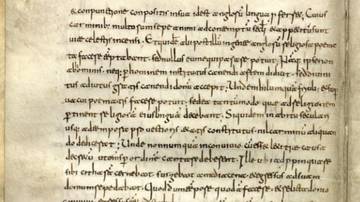 & conpunctione compositis in sua id est anglorum lingua proferret. Cuius
carminib; multorum saepe animi ad contemptum saeculi & appetitum sunt
uitae caelestis accensi. Et quidem & alii post illum in gente anglorum religiosa poema
ta facere temptabant. sed nullus eum aequiperare potuit. Namq; ipse non
ab hominib; neq; per hominem institutus canendi artem didicit. sed diuini
tus adiutus gratis canendi donum accepit. Unde nihil umquam friuoli & super
uacui poematis facere potuit. sed ea tantummodo quae ad religionem
pertinent religiosam eius linguam decebant. Siquidem in habitu saeculari
usq; ad tempora prouectioris aetatis constitutus. nil carminum aliquan
do didicerat. Unde nonnumquam in conuiuio cum esset laetitiae causa
decretum ut omnes per ordinem cantare deberent. Ille ubi adpropinquare
sibi citharam cernebat surgebat a media caena. & egressus ad suam
domum repedabat. Quod dum tempore quodam faceret. & relicta domo